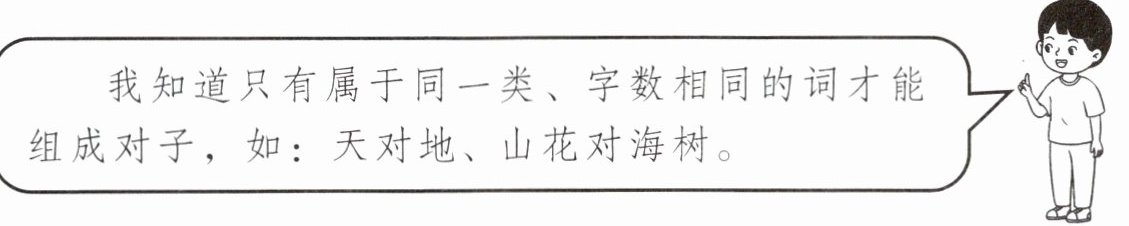 我知道只有属于同一类、字数相同的词才能
组成对子，如：天对地、山花对海树。